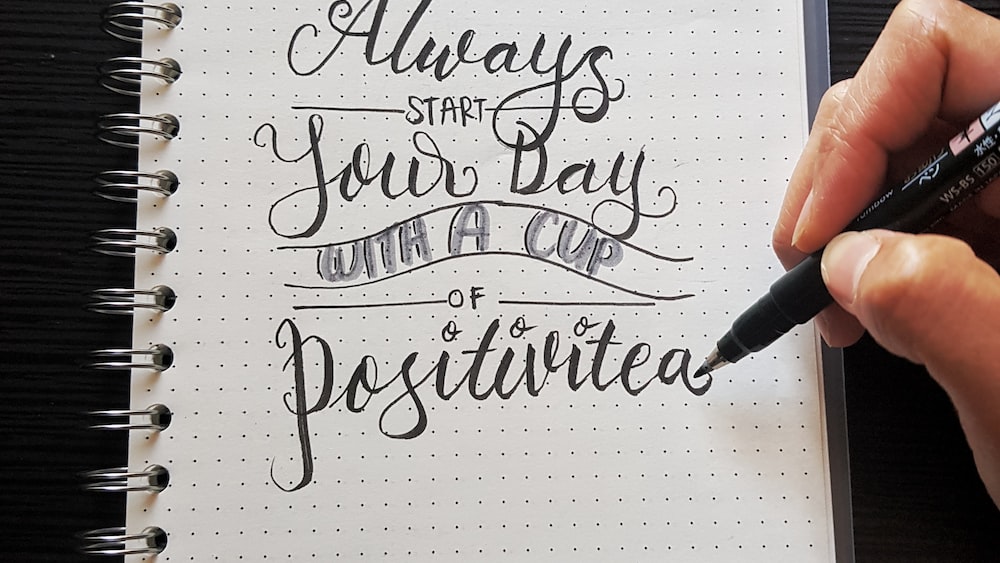 Always
START
Your Day
WITH A CUP
OF
Positivitea
WS-BS (150